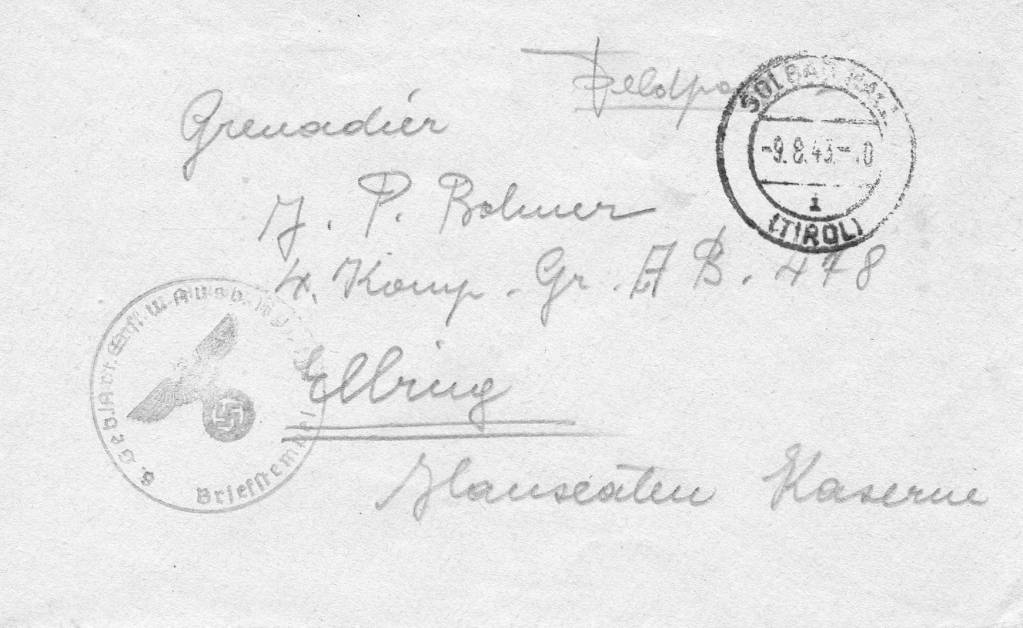 Feldpost
SOLBAD HALL
-9.8.43.-10
i
(TIROL)
Grenadier
J. P. Bohner
4. Komp. Gr. A B. 478
Elbing
Hanseaten Kaserne
Briefstempel